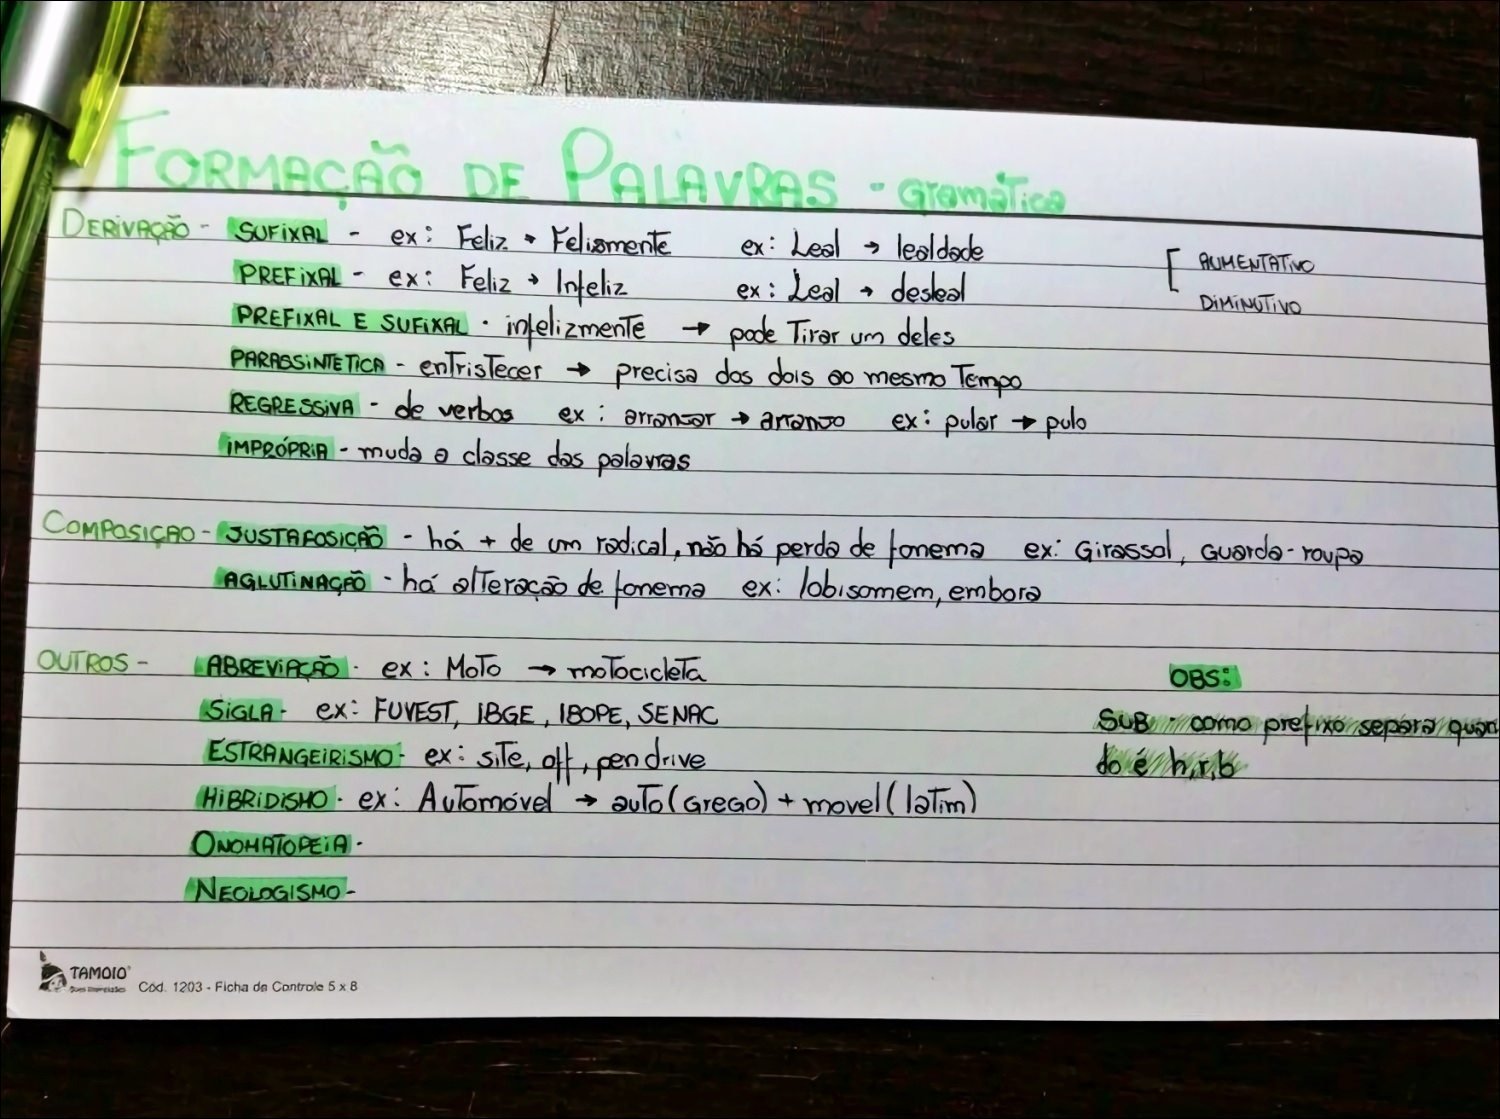 FORMAÇÃO DE PALAVRAS - Gramática
DERIVAÇÃO - SUFIXAL - ex: Feliz → Felismente ex: Leal → lealdade [ AUMENTATIVO
DIMINUTIVO
PREFIXAL - ex: Feliz → Infeliz ex: Leal → desleal
PREFIXAL E SUFIXAL - infelizmente → pode Tirar um deles
PARASSINTETICA - entristecer → precisa dos dois ao mesmo Tempo
REGRESSIVA - de verbos ex: arrancar → arranco ex: pular → pulo
IMPRÓPRIA - muda a classe das palavras
COMPOSIÇÃO - JUSTAPOSIÇÃO - há + de um radical, não há perda de fonema ex: Girassol, Guarda-roupa
AGLUTINAÇÃO - há alteração de fonema ex: lobisomem, embora
OUTROS - ABREVIAÇÃO - ex: Moto → motocicleta
SIGLA - ex: FUVEST, IBGE, IBOPE, SENAC
ESTRANGEIRISMO - ex: site, off, pen drive
HIBRIDISMO - ex: Automóvel → auto (Grego) + movel (latim)
ONOMATOPEIA -
NEOLOGISMO -
OBS:
SUB - como prefixo separa quan
do é h,r,b
TAMOIO
Cód. 1203 - Ficha de Controle 5 x 8